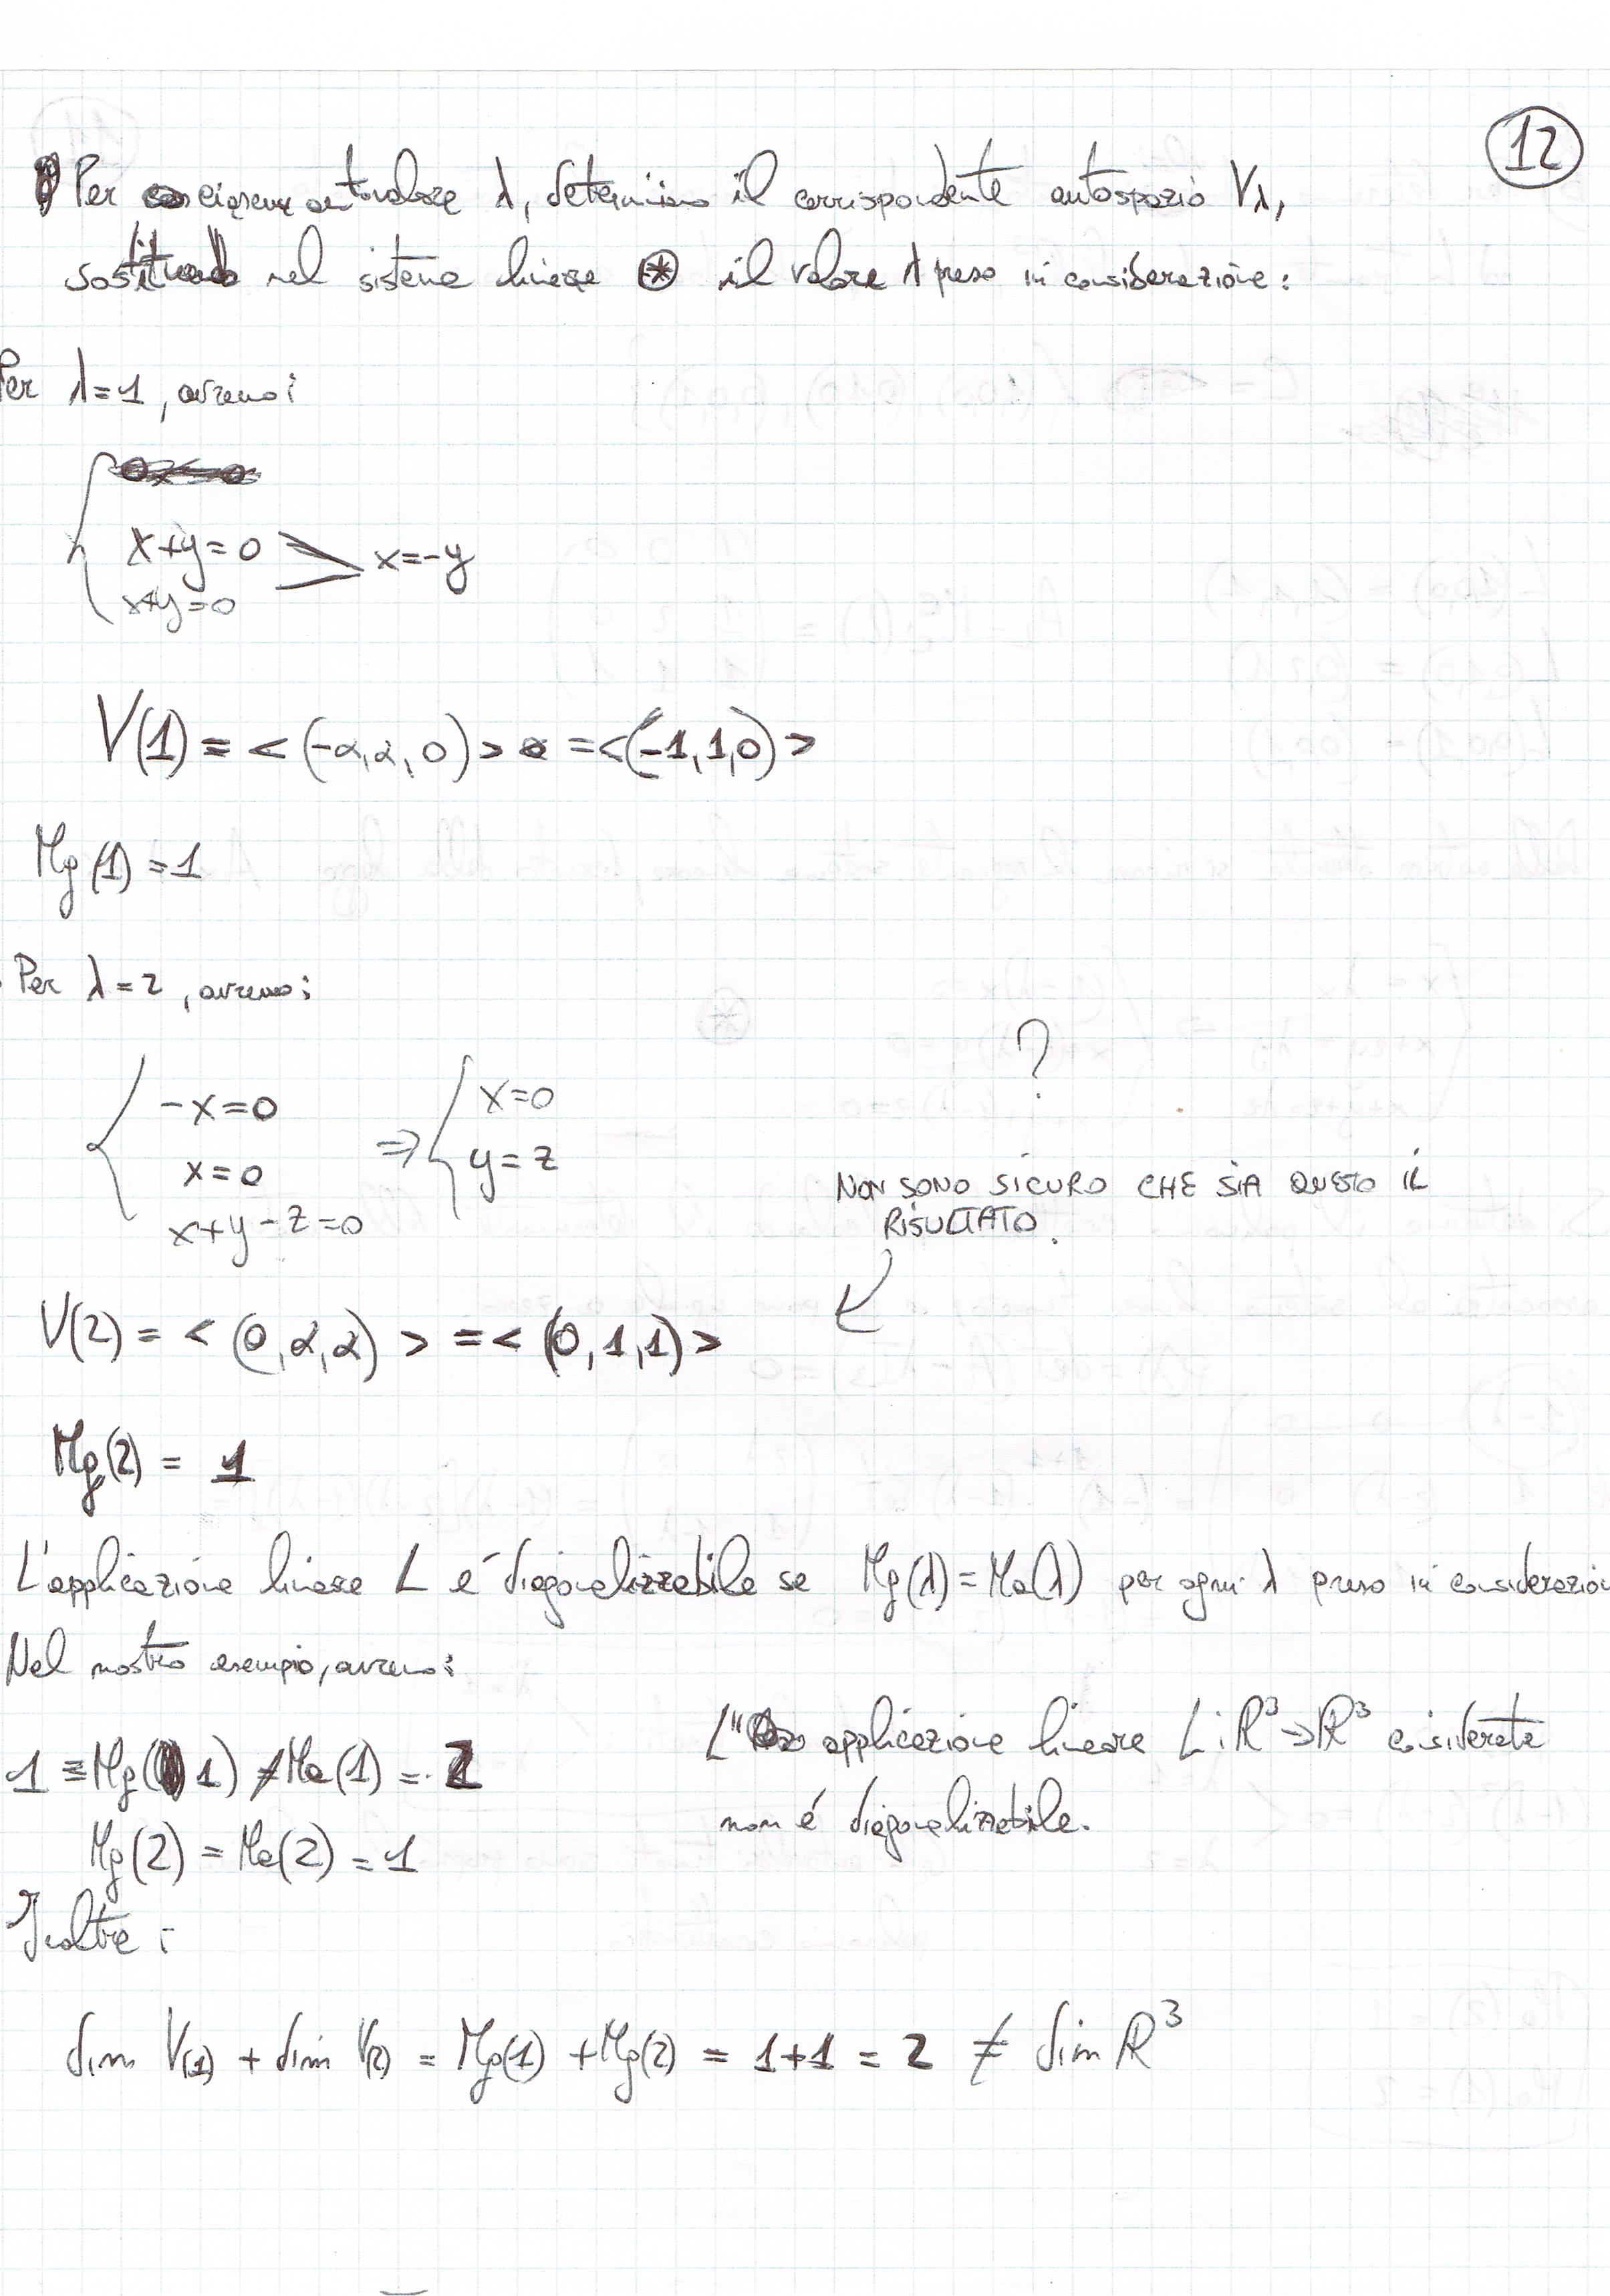 12
Per ciascun autovalore λ, determiniamo il corrispondente autospazio Vλ,
sostituendo nel sistema lineare ⊛ il valore λ preso in considerazione:
Per λ=1, avremo:
x+y=0
x+y=0
x=-y
V(1) = <(-α,α,0)> = <(-1,1,0)>
Mg(1)=1
Per λ=2, avremo:
-x=0
x=0
x+y-z=0
⇒
x=0
y=z
?
NON SONO SICURO CHE SIA QUESTO IL
RISULTATO.
V(2) = <(0,α,α)> = <(0,1,1)>
Mg(2) = 1
L'applicazione lineare L é diagonalizzabile se Mg(λ)=Ma(λ) per ogni λ preso in considerazion
Nel nostro esempio, avremo:
1 = Mg(1) ≠ Ma(1) = 2
Mg(2) = Ma(2) = 1
L' applicazione lineare L:R³→R³ considerata
non é diagonalizzabile.
Inoltre:
dim V(1) + dim V(2) = Mg(1) + Mg(2) = 1+1 = 2 ≠ dim R³